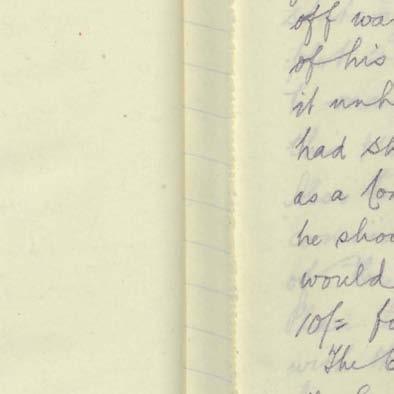 off wa
of his
it unh
had st
as a
he shou
would
10/= fo
The